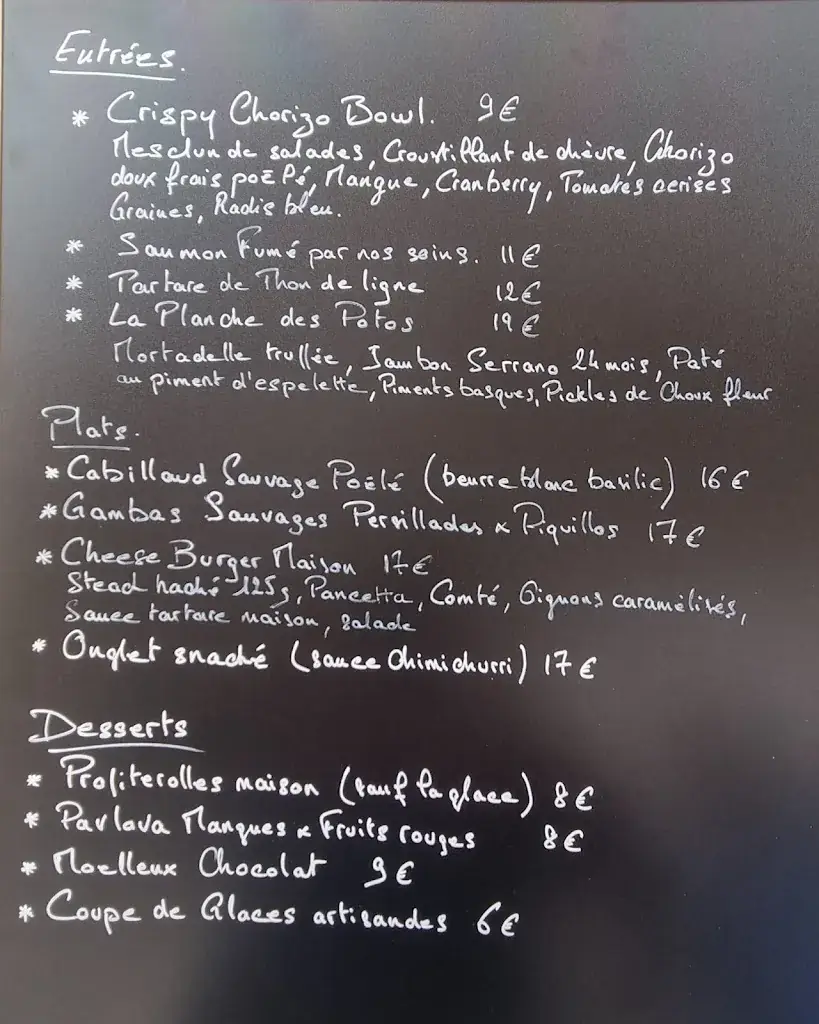 Entrées.
* Crispy Chorizo Bowl. 9€
Mesclun de salades, Croustillant de chèvre, Chorizo
doux frais poëlé, Mangue, Cranberry, Tomates cerises
Graines, Radis bleu.
* Saumon Fumé par nos soins. 11€
* Tartare de Thon de ligne 12€
* La Planche des Potos 19€
Mortadelle truffée, Jambon Serrano 24 mois, Paté
au piment d'espelette, Piments basques, Pickles de Choux fleur
Plats.
* Cabillaud Sauvage Poëlé (beurre blanc basilic) 16€
* Gambas Sauvages Persillades x Piquillos 17€
* Cheese Burger Maison 17€
Steack haché 125g, Pancetta, Comté, Oignons caramélisés,
Sauce tartare maison, salade
* Onglet snaché (sauce Chimichurri) 17€
Desserts
* Profiterolles maison (sauf la glace) 8€
* Pavlova Mangues x Fruits rouges 8€
* Moelleux Chocolat 9€
* Coupe de Glaces artisanales 6€